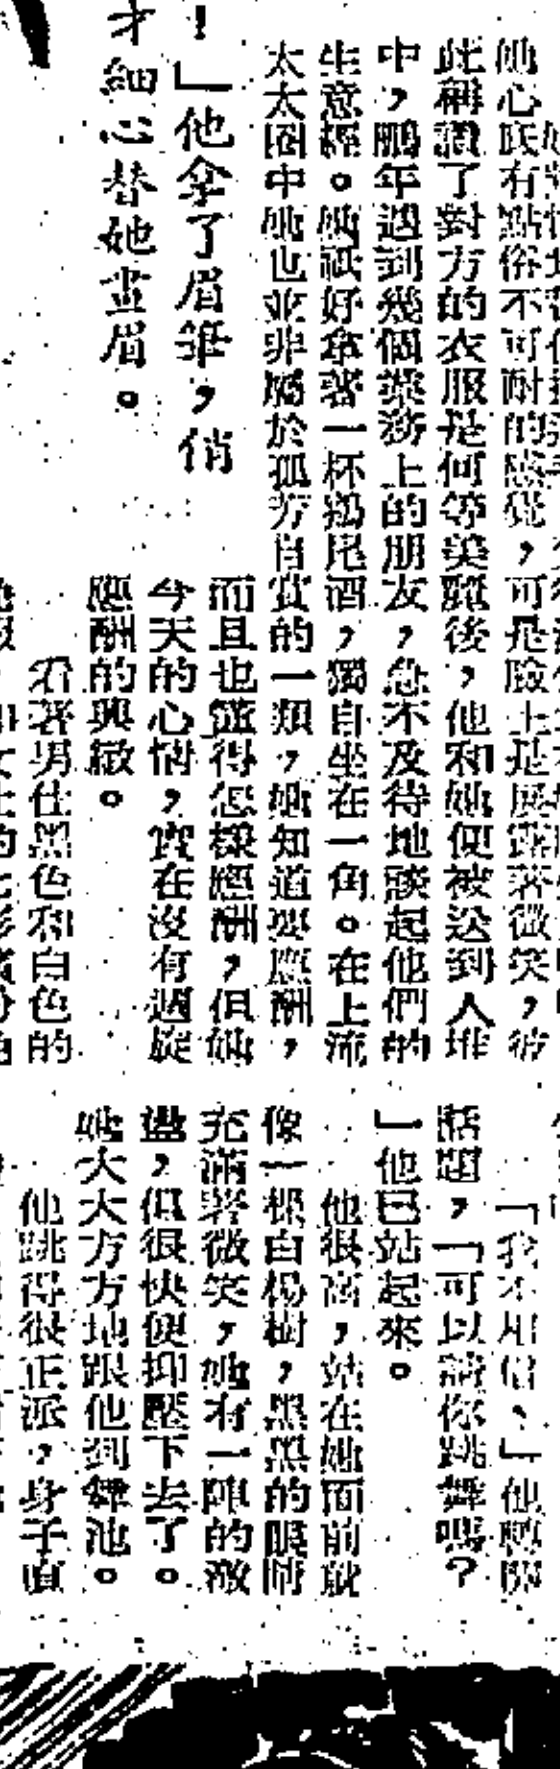 她心底有點俗不可耐的感覺，可是臉上是展露著微笑，彼
此稱讚了對方的衣服是何等美麗後，他和她便被送到人堆
中，鵬年遇到幾個業務上的朋友，急不及待地談起他們的
生意經。她祇好拿著一杯鷄尾酒，獨自坐在一角。在上流
太太圈中她也並非屬於孤芳自賞的一類，她知道要應酬，
而且也懂得怎樣應酬，但她
今天的心情，實在沒有週旋
應酬的興緻。
看著男仕黑色和白色的
！」他拿了眉筆，俏
才細心替她畫眉。
「我不相信。」他轉開
話題，「可以請你跳舞嗎？
」他已站起來。
他很高，站在她面前就
像一棵白楊樹，黑黑的眼睛
充滿著微笑，她有一陣的激
盪，但很快便抑壓下去了。
她大大方方地跟他到舞池。
他跳得很正派，身子直